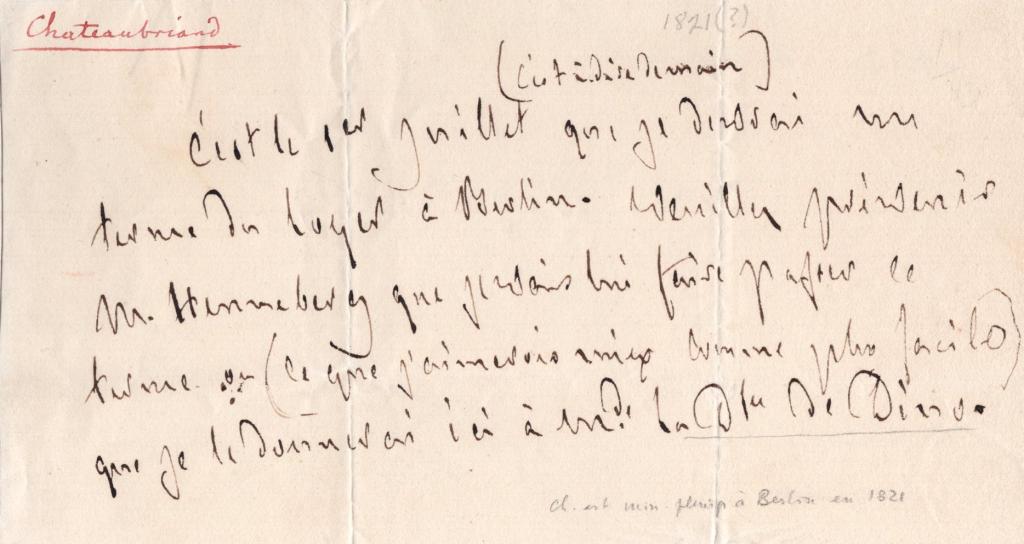 Chateaubriand
1821(?)
(c'est à dire demain)
C'est le 1er juillet que je devrai un
terme du loyer à Berlin. Veuillez prévenir
M. Henneberg que je vais lui faire passer ce
terme ou (ce que j'aimerais mieux comme plus facile)
que je le donnerai ici à Md. la Dsse de Dino.
Ch. est min. plénip à Berlin en 1821